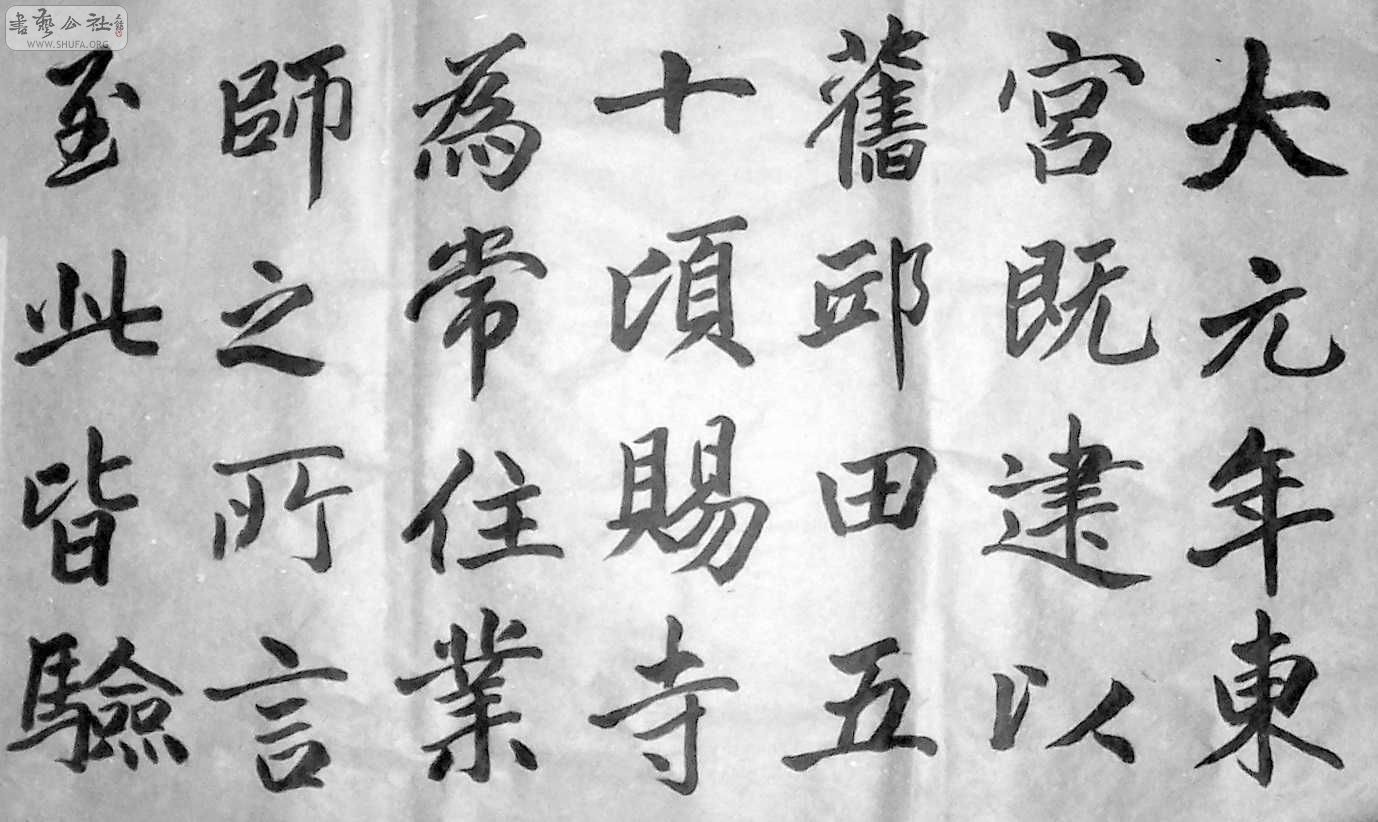 大元年東
宮既建以
舊邸田五
十頃賜寺
為常住業
師之所言
至此皆驗
書藝公社
WWW.SHUFA.ORG